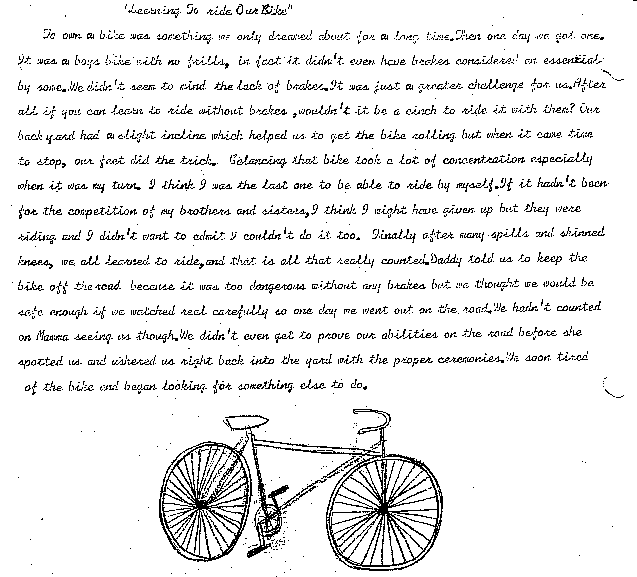 "Learning To ride Our Bike"
To own a bike was something we only dreamed about for a long time.Then one day we got one.
It was a boys bike with no frills, in fact it didn't even have brakes considered an essential
by some.We didn't seem to mind the lack of brakes.It was just a greater challenge for us.After
all if you can learn to ride without brakes ,wouldn't it be a cinch to ride it with them? Our
back yard had a slight incline which helped us to get the bike rolling but when it came time
to stop, our feet did the trick. Balancing that bike took a lot of concentration especially
when it was my turn. I think I was the last one to be able to ride by myself.If it hadn't been
for the competition of my brothers and sisters,I think I might have given up but they were
riding and I didn't want to admit I couldn't do it too. Finally after many spills and skinned
knees, we all learned to ride,and that is all that really counted.Daddy told us to keep the
bike off the road because it was too dangerous without any brakes but we thought we would be
safe enough if we watched real carefully so one day we went out on the road.We hadn't counted
on Mamma seeing us though.We didn't even get to prove our abilities on the road before she
spotted us and ushered us right back into the yard with the proper ceremonies.We soon tired
of the bike and began looking for something else to do.